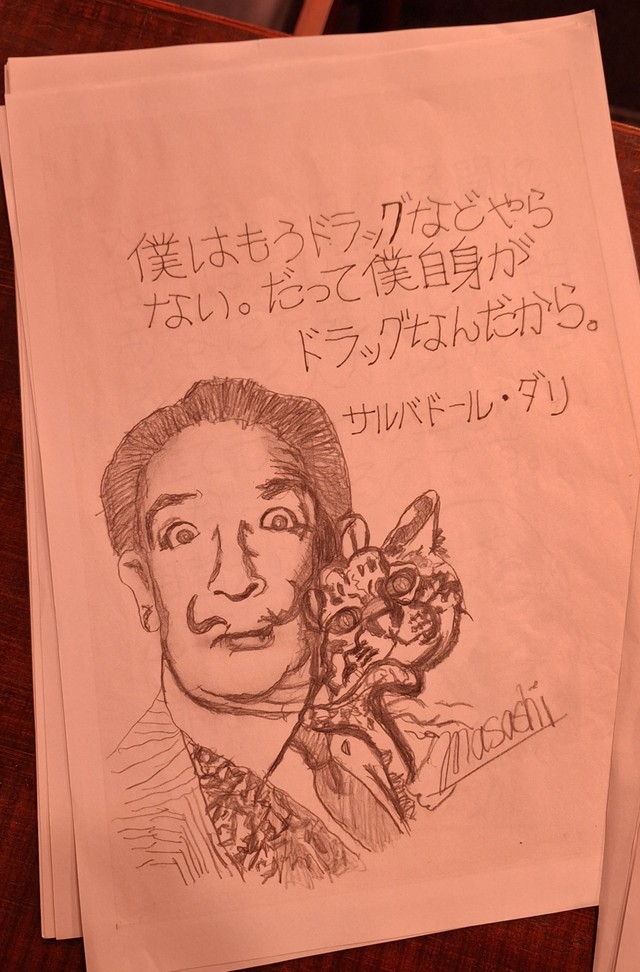 僕はもうドラッグなどやら
ない。だって僕自身が
ドラッグなんだから。
サルバドール・ダリ
masashi